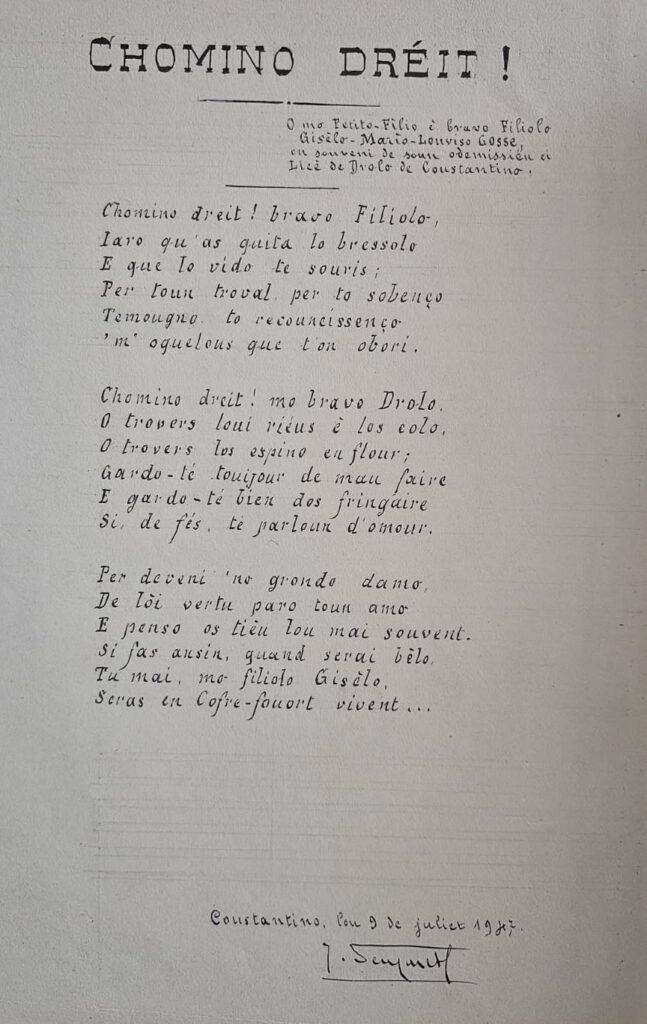 CHOMINO DRÉIT !
O mo Petito-Filio è bravo Filiolo
Gisèlo-Mario-Louviso GOSSE,
en souveni de soun odemissièu ei
Licè de Drolo de Coustantino.
Chomino dreit ! bravo Filiolo,
Iaro qu'as quita lo bressolo
E que lo vido te souris ;
Per toun troval per to sobenço
Temougno to recouneissenço
'm' oquelous que t'on obori.
Chomino dreit ! mo bravo Drolo,
O trovers loui riéus è los colo,
O trovers los espino en flour ;
Gardo-té toujour de mau faire
E gardo-té bien dos fringaire
Si, de fés, te parloun d'omour.
Per deveni 'no grondo damo,
De lòi vertu paro toun amo
E penso os tièu lou mai souvent.
Si fas ansin, quand serai bèlo,
Tu mai, mo filiolo Gisèlo,
Seras en Cofre-fouort vivent...
Coustantino, lou 9 de juliet 1947.
J.